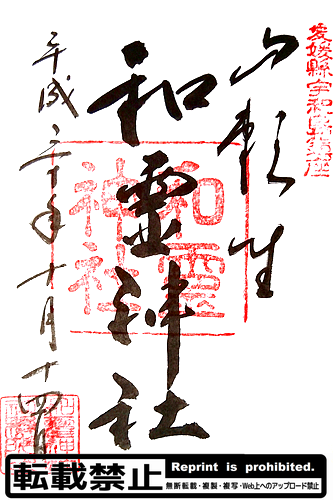 愛媛縣宇和島鎮座
和霊神社
和霊
神社
平成三十年十月十四日
転載禁止
Reprint is prohibited.
無断転載・複製・複写・Web上へのアップロード禁止